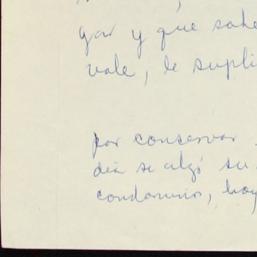 gar y que sabe
vale, le supli
por conservar
día se alzó su
condominio, hoy